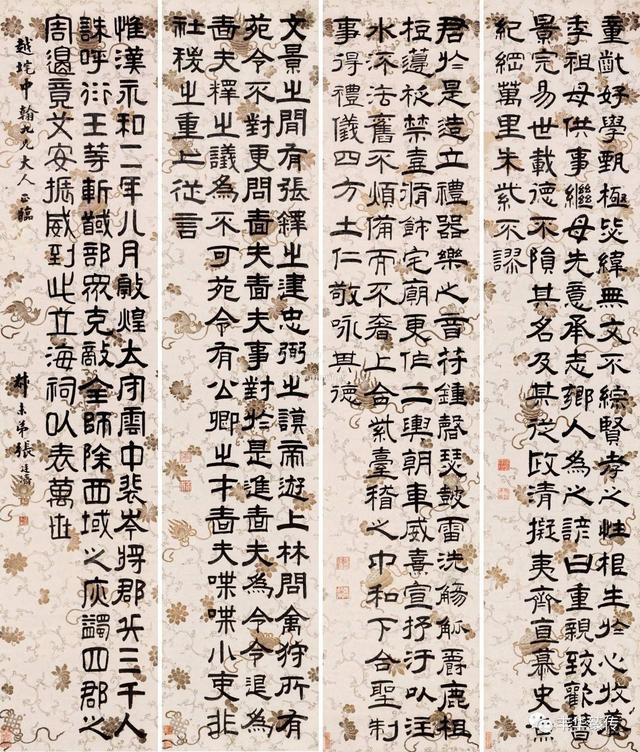 童齔好學甄極毖緯無文不綜賢孝之性根生於心收養
季祖母供事繼母先意承志鄉人為之諺曰重親致歡曹
景完易世載德不隕其名及其從政清擬夷齊直慕史魚
紀綱萬里朱紫不謬
君於是造立禮器樂之音符鍾磬瑟鼓雷洗觴觚爵鹿柤
梪籩柉禁壺脩飾宅廟更作二輿朝車威熹宣抒汙以注
水流法舊不煩備而不奢上合紫臺稽之中和下合聖制
事得禮儀四方士仁敬咏其德
文景之間有張釋之建忠弼之謨帝遊上林問禽狩所有
苑令不對更問嗇夫嗇夫事對於是進嗇夫為令令退為
嗇夫釋之議為不可苑令有公卿之才嗇夫喋喋小吏非
社稷之重上從言
惟漢永和二年八月敦煌太守雲中裴岑將郡兵三千人
誅呼衍王等斬馘部眾克敵全師除西域之疢蠲四郡之
害邊竟艾安振威到此立海祠以表萬世
越垞中翰九兄大人正臨
叔未弟張廷濟